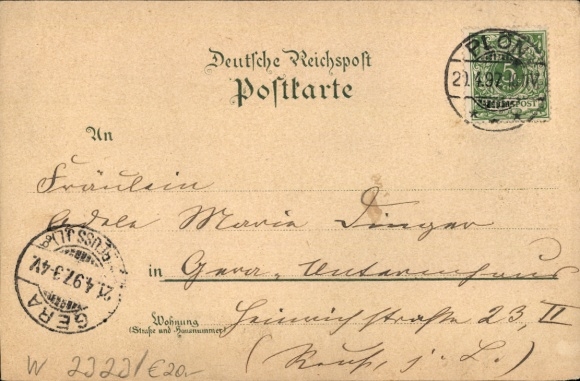 Deutsche Reichspost
Postkarte
PLÖN
20.4.97. IV
REICHSPOST
An
Fräulein
Adele Marie Dinger
in Gera-Untermhaus
Wohnung
(Straße und Hausnummer)
Heinrichstraße 23 II
(Reuß, j. L.)
GERA
21.4.97.3-4V.
(REUSS J.L.)
W 2323/€20.-